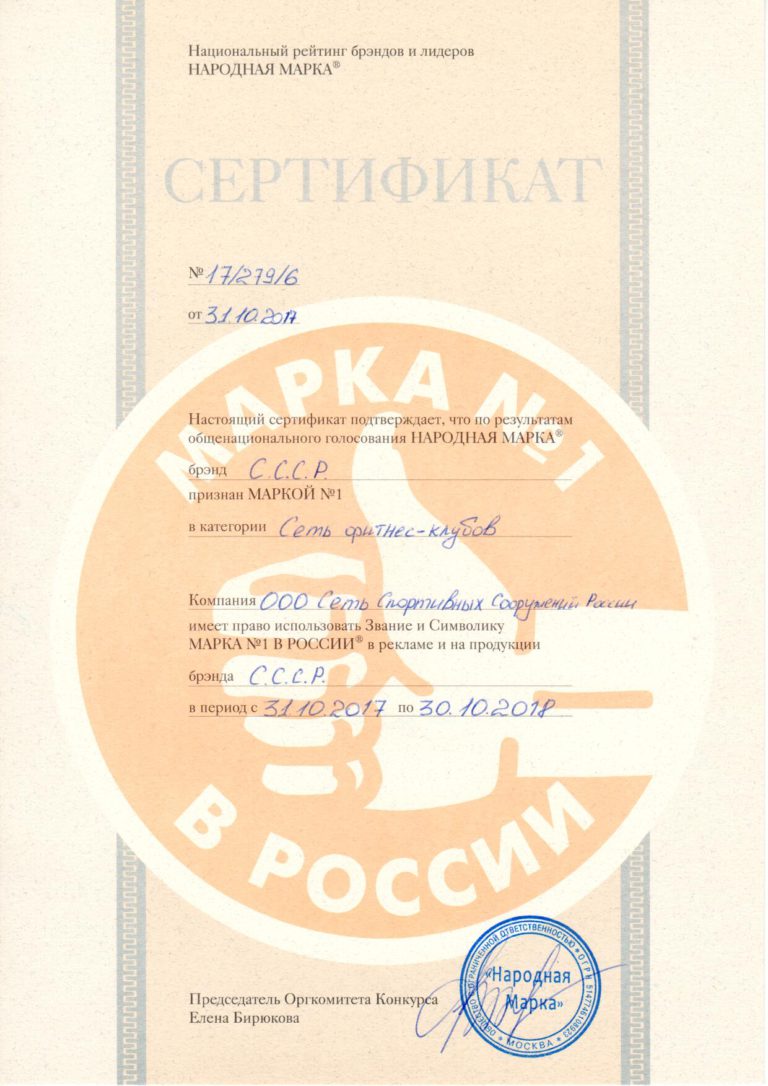 Национальный рейтинг брэндов и лидеров
НАРОДНАЯ МАРКА®
СЕРТИФИКАТ
№ 17/279/6
от 31.10.2017
МАРКА №1
Настоящий сертификат подтверждает, что по результатам
общенационального голосования НАРОДНАЯ МАРКА®
брэнд С.С.С.Р.
признан МАРКОЙ №1
в категории Сеть фитнес-клубов
Компания ООО Сеть Спортивных Сооружений России
имеет право использовать Звание и Символику
МАРКА №1 В РОССИИ® в рекламе и на продукции
брэнда С.С.С.Р.
в период с 31.10.2017 по 30.10.2018
В РОССИИ
Председатель Оргкомитета Конкурса
Елена Бирюкова
«Народная
Марка»
ОБЩЕСТВО С ОГРАНИЧЕННОЙ ОТВЕТСТВЕННОСТЬЮ * ОГРН
* МОСКВА *